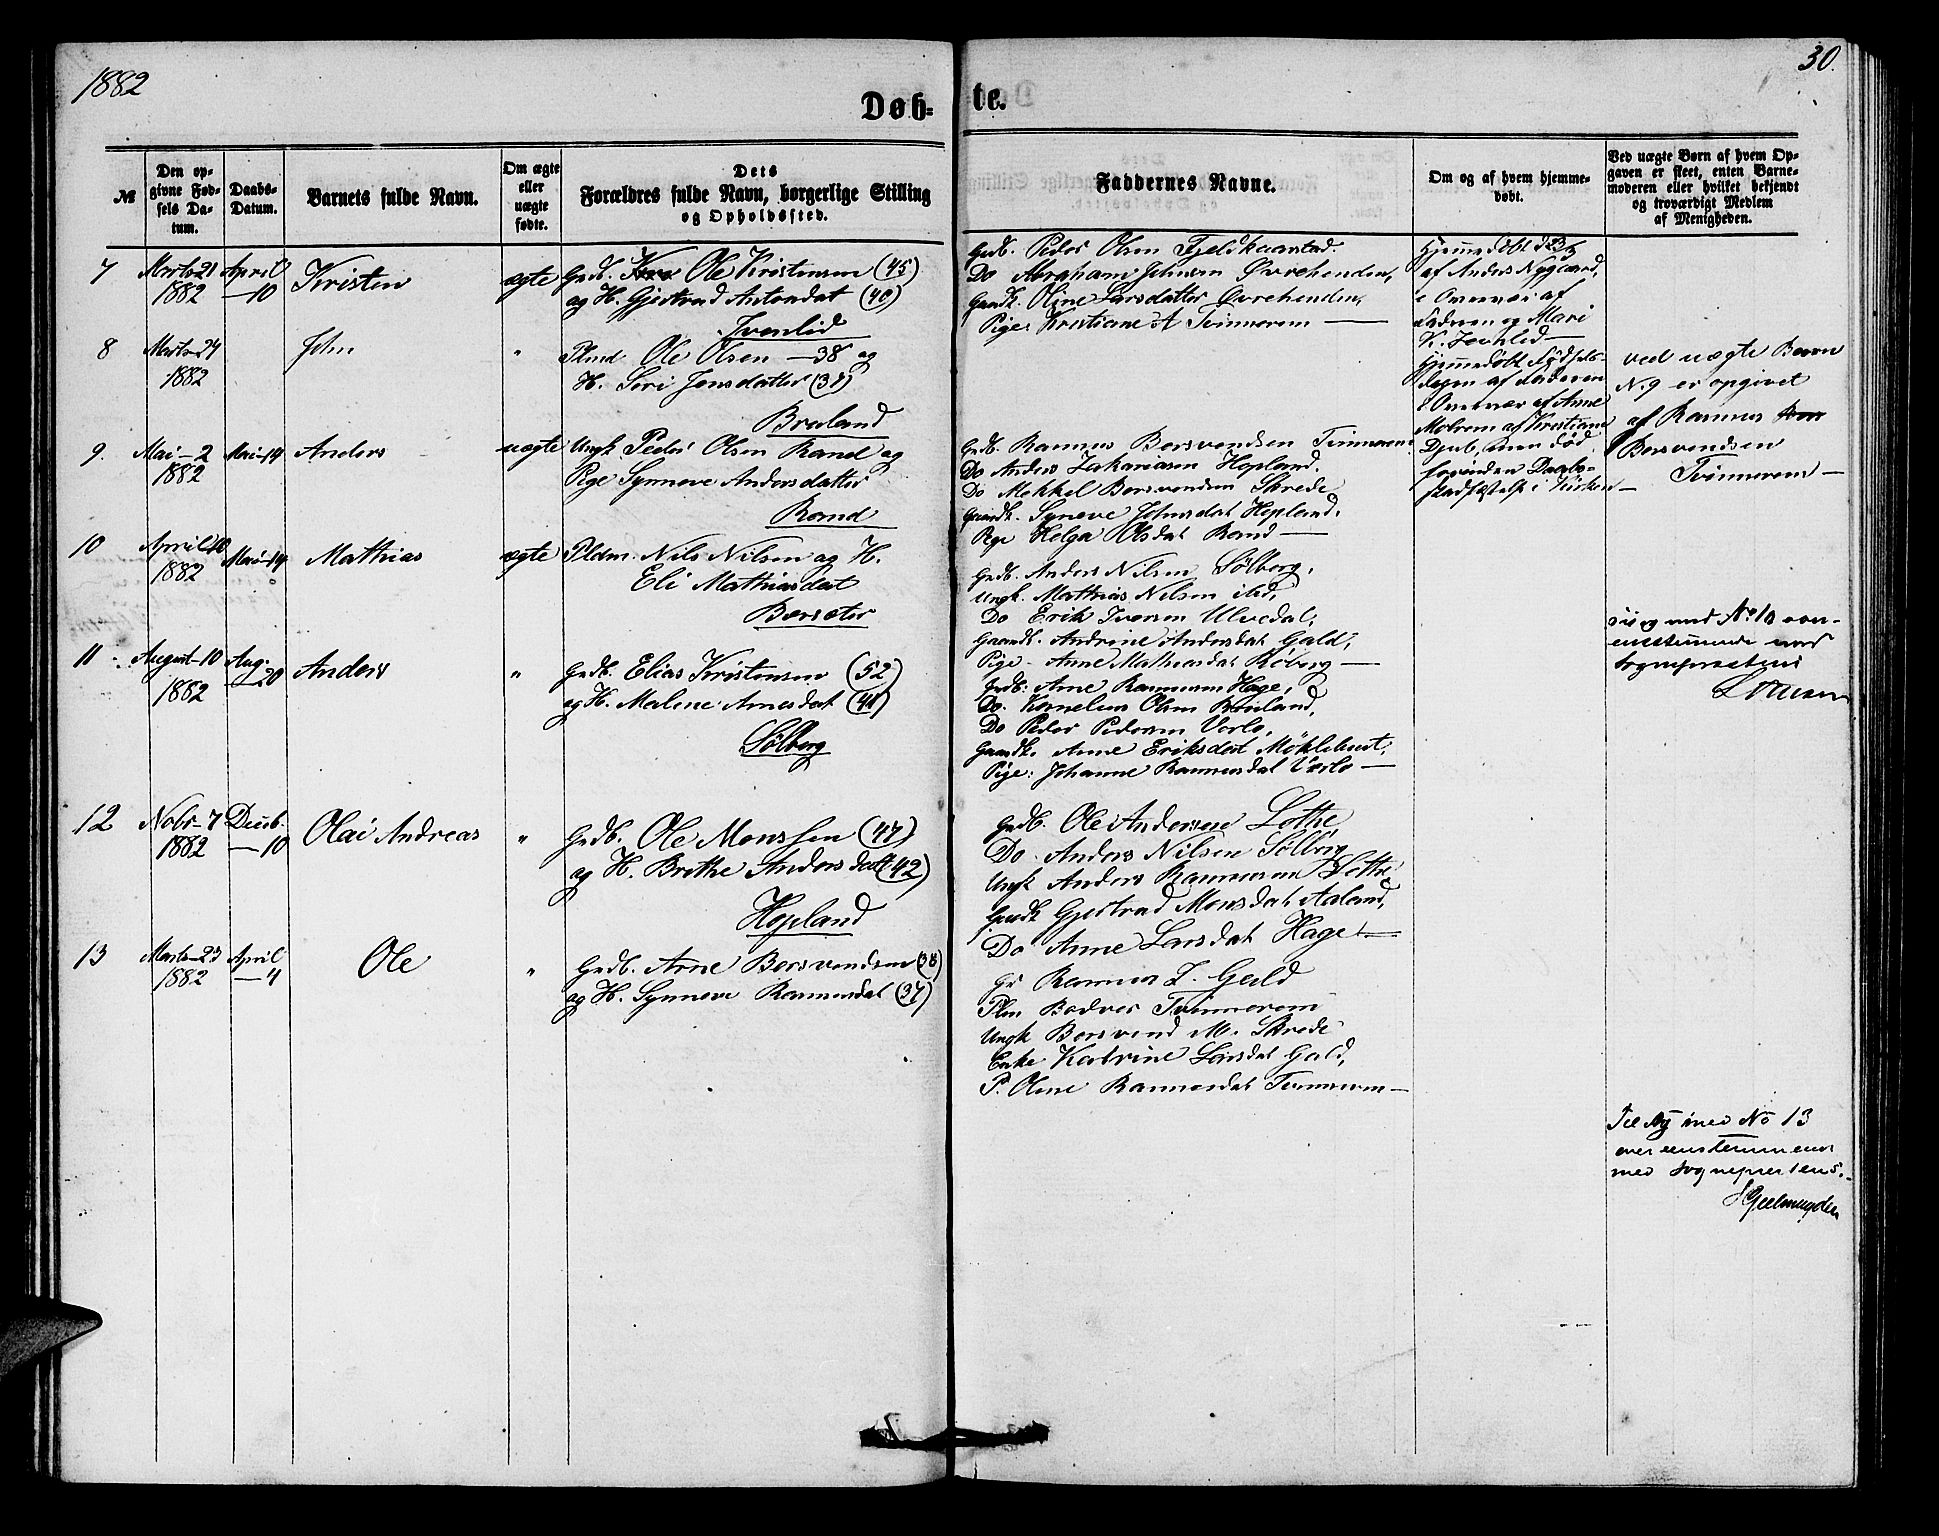 1882
30.
Døb-
te.
№
Den op-
givne Fød-
sels Da-
tum.
Daabs-
Datum.
Barnets fulde Navn.
Om ægte
eller
uægte
fødte.
Dets
Forældres fulde Navn, borgerlige Stilling
og Opholdssted.
Faddernes Navne.
Om og af hvem hjemme-
døbt.
Ved uægte Børn af hvem Op-
gaven er skeet, enten Barne-
moderen eller hvilket bekjendt
og troværdigt Medlem
af Menigheden.
7
Marts 21
1882
April
— 10
Kristen
ægte
Grdb. Ole Kristensen (45)
og H. Gjertrud Antondat (40)
Grdb. Peder Olsen
Do Abraham Johnsen Øvrehenden,
Gaardk. Oline Larsdatter Øvrehenden,
Pige. Kristiane A Tvinnerem —
Hjemmedøbt d 23/3
af Anders Nygaard,
i Overvær af
Faderen og Mari
8
Marts 24
1882
John
"
Plmd. Ole Olsen — 38 og
H. Seri Jensdatter (37)
Bruland
Hjemmedøbt Fødsels-
dagen af Faderen
i Overvær af Anne
Kristiane
men død
forinden Daabs-
stadfæstelse i Kirken —
ved uægte Barn
N. 9 er opgivet
af Rasmus
Børsvendsen
Tvinnerem —
9.
Mai — 2
1882
Mai 14
Anders
uægte
Ungk Peder Olsen Rand og
Pge Synneve Andersdatter
Rand
Grdb. Rasmus Børsvendsen Tvinnerem.
Do Anders Zakariasen Hopland.
Do Mekkel Børsvendsen Skrede
Gaardk. Syneve Johnsdat Hopland.
Pge Helga Olsdat Rand —
10
April 10
1882
Mai 14
Mathias
ægte
Pldm. Nils Nilsen og H.
Eli Mathiasdat
Børsæter
Grdb. Anders Nilsen Sølberg,
Ungk. Mathias Nilsen ibd,
Do Erik Iversen Ulvedal,
Gaardk. Andrine Andersdat Gald,
Pige Anne Mathiasdat Roberg —
til og med No. 10 over-
ensstemmende med
Sogneprestens
11
August 10
1882
Aug.
— 20
Anders
"
Grdb. Elias Kristensen (52)
og H. Malene Arnesdat (41)
Sølberg
Grdb. Arne Rasmusen Hage,
Do. Kornelius Olsen Bruland,
Do Peder Pedersen Vorlo,
Gaardk. Anne Eriksdat Møklebust,
Pige: Johanne Rasmusdat Vorlo —
12
Nobr 7
1882
Decmb.
— 10
Olai Andreas
"
Grdb. Ole Monssen (47)
og H. Brithe Andersdatt (42)
Hopland
Grdb. Ole Andersen Lothe
Do Anders Nilsen Sølberg
Ungk Anders Rasmusen Lothe
Gardk Gjertrud Monsdat Aaland,
Do Anne Larsdat Hage —
13
Marts 23
1882
April
— 4
Ole
"
Grdb. Arne Børsvendsen (38)
og H. Synneve Rasmusdat (37)
Gr Rasmus J. Gald
Plm Tvinnerem
Ungk Børsvend M. Skrede
Enke Katrine Larsdat Gald,
P. Oline Rasmusdat Tvinnerem —
Til og med No 13
overeensstemmende
med Sogneprestens.
Geelmuyden